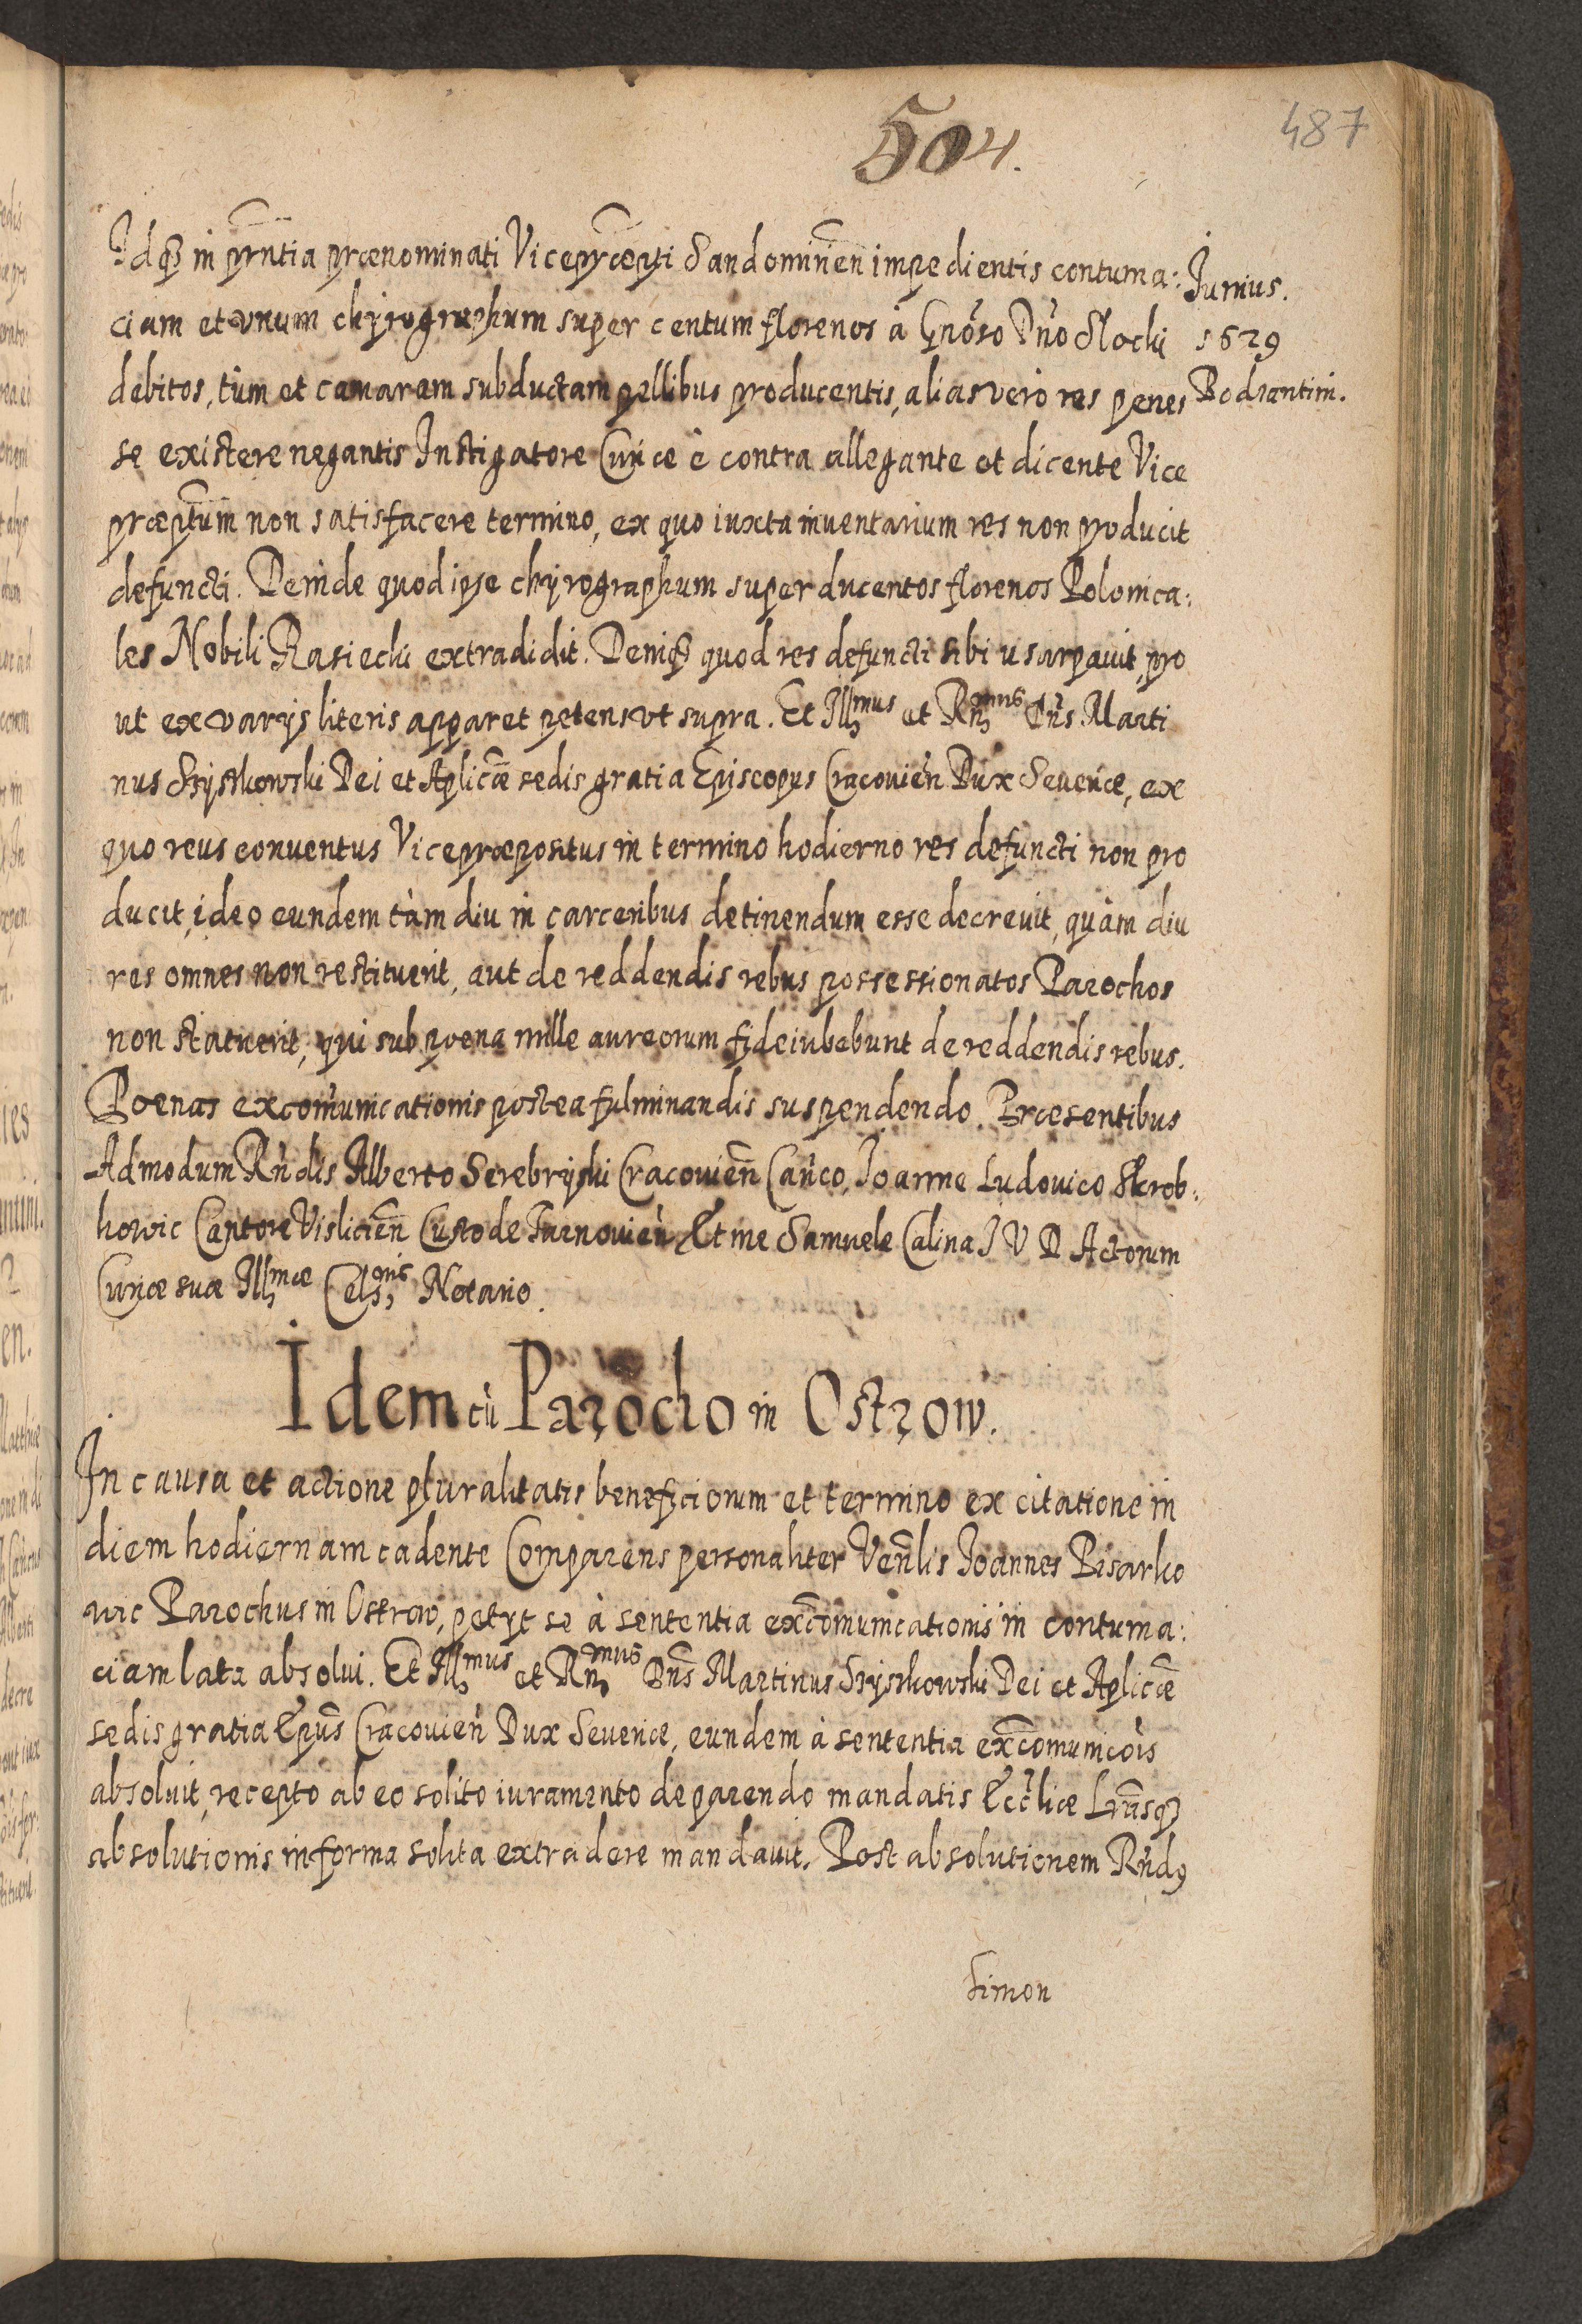 504.
487
Idq3 in prntia prænominati Vicepræpti Sandominen impedientis contuma:
Junius.
ciam et vnum chyrographum super centum florenos à Gnoso Dno Slocki
1629
debitos, tum et camaram subductam pellibus producentis, alias vero res penes
Bodzantini.
se existere negantis Instigatore Curiæ è contra allegante et dicente Vice
præptum non satisfacere termino, ex quo iuxta inuentarium res non producit
defuncti. Deinde quod ipse chyrographum super ducentos florenos Polonica:
les Nobili Rasiecki extradidit. Deniq3 quod res defuncti sibi usurpauit, pro
ut ex varijs literis apparet petens vt supra. Et Illmus et Rnmus Dns Marti
nus Szyszkowski Dei et Aplicæ sedis gratia Episcopus Cracouien Dux Seueriæ, ex
quo reus conuentus Vicepræpositus in termino hodierno res defuncti non pro
ducit, ideo eundem tàm diu in carceribus detinendum esse decreuit, quàm diu
res omnes non restituerit, aut de reddendis rebus possessionatos Parochos
non statuerit, qui sub poena mille aureorum fideiubebunt de reddendis rebus.
Poenas excomunicationis postea fulminandis suspendendo. Præsentibus
Admodum Rndis Alberto Serebryski Cracouien Canco, Joanne Ludouico Skrob:
kowic Cantore Vislicien Custode Tarnouien Et me Samuele Calina I V D Actorum
Curiæ suæ Illmæ Celsnis Notario.
Idem cù Parocho in Ostrow.
In causa et actione pluralitatis beneficiorum et termino ex citatione in
diem hodiernam cadente Comparens personaliter Venlis Joannes Pisarko
wic Parochus in Ostrow, petyt se à sententia excomunicationis in contuma:
ciam lata absolui. Et Illmus et Rnmus Dns Martinus Szyszkowski Dei et Aplicæ
sedis gratia Epus Cracouien Dux Seueriæ, eundem à sententia excomunicois
absoluit, recepto ab eo solito iuramento de parendo mandatis Eccliæ Lrasq3
absolutionis in forma solita extradere mandauit. Post absolutionem Rnd9
Simon